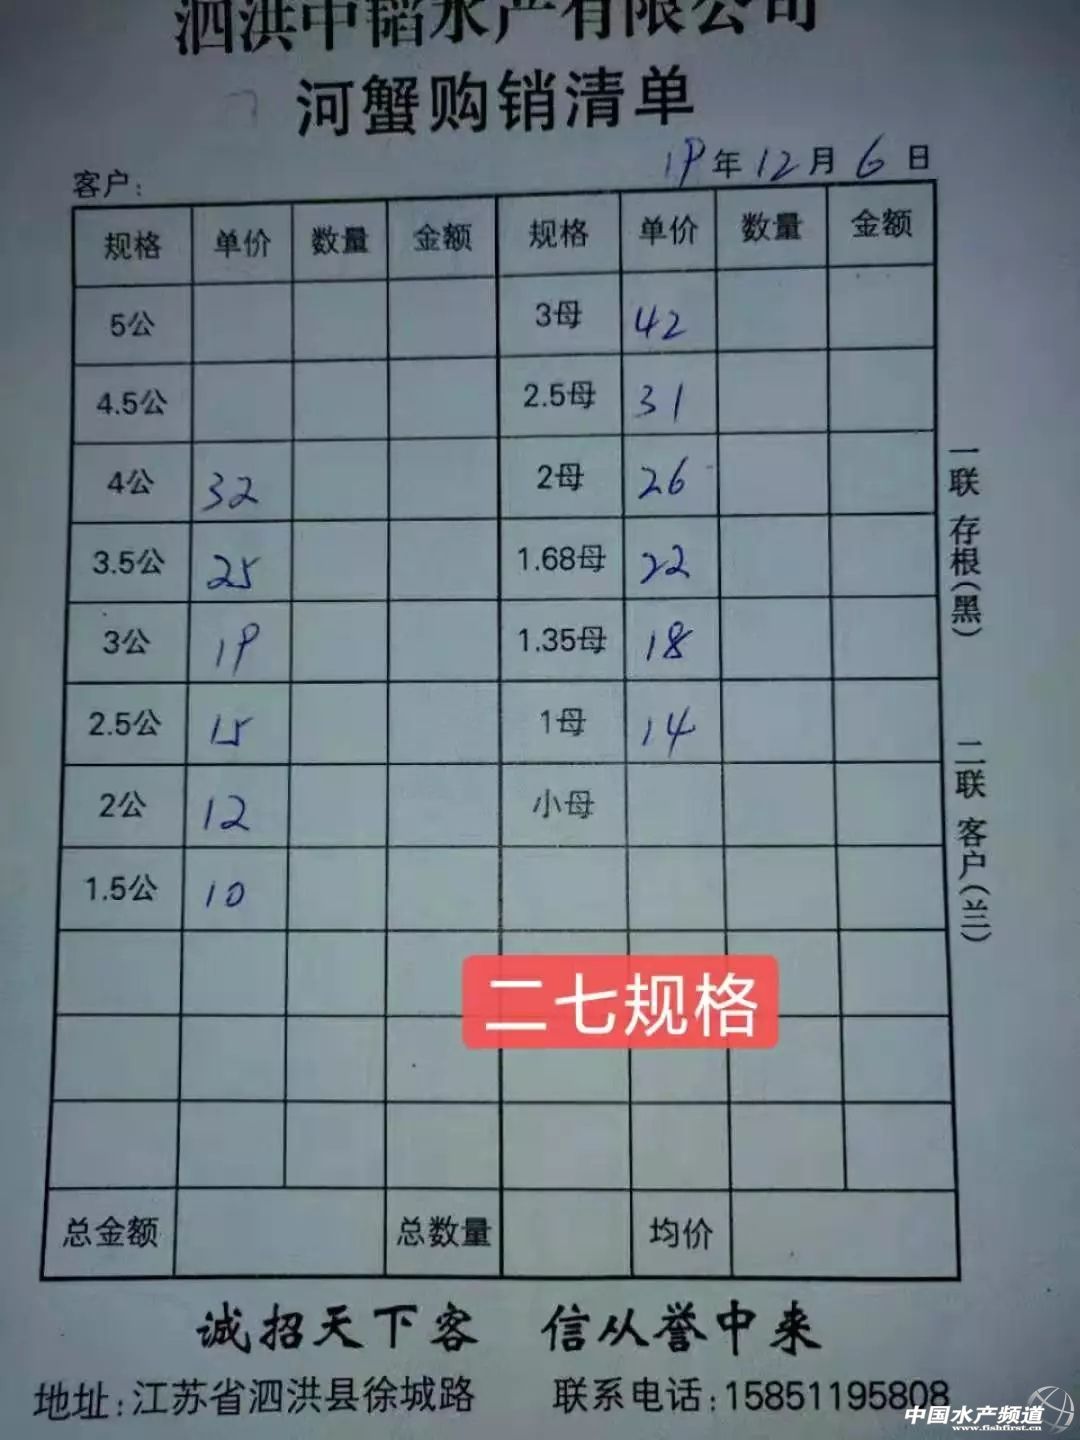 泗洪中韬水产有限公司
河蟹购销清单
19年12月6日
客户:
规格 单价 数量 金额 规格 单价 数量 金额
5公 3母 42
4.5公 2.5母 31
4公 32 2母 26
3.5公 25 1.68母 22
3公 19 1.35母 18
2.5公 15 1母 14
2公 12 小母
1.5公 10
二七规格
总金额 总数量 均价
一联 存根(黑) 二联 客户(兰)
诚招天下客 信从誉中来
地址:江苏省泗洪县徐城路 联系电话:15851195808
中国水产频道
www.fishfirst.cn